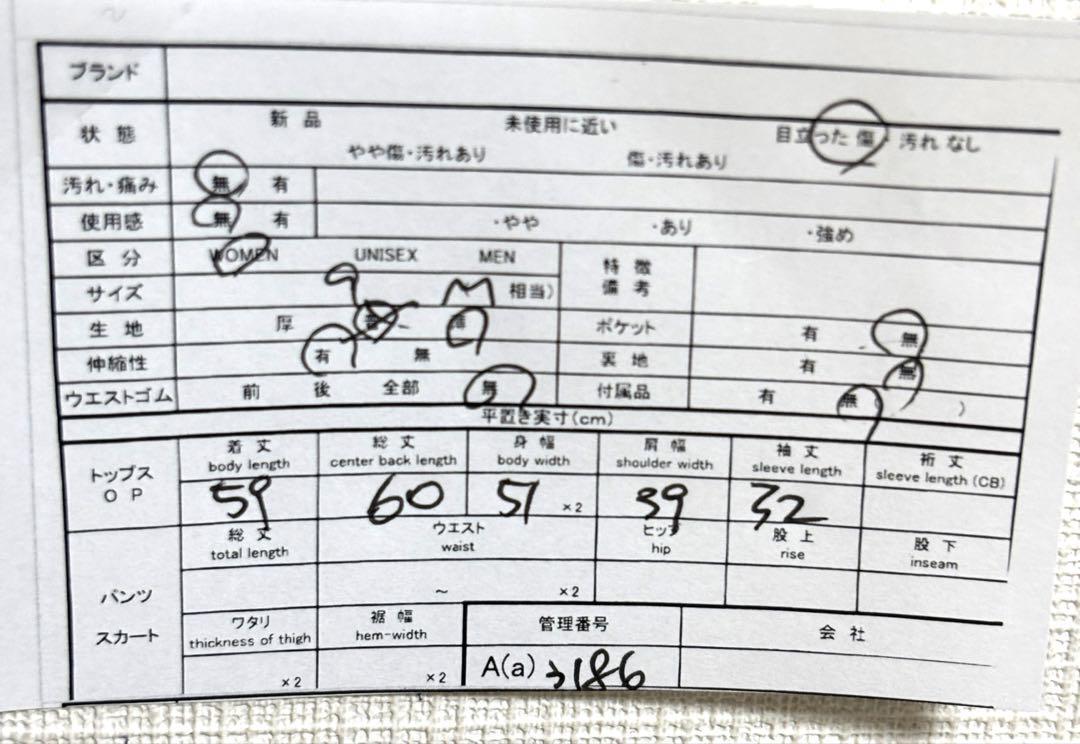 ブランド
状態 新品 未使用に近い 目立った傷・汚れなし
やや傷・汚れあり 傷・汚れあり
汚れ・痛み 無 有
使用感 無 有 ・やや ・あり ・強め
区分 WOMEN UNISEX MEN 特徴
サイズ 9 M 相当) 備考
生地 厚 普 薄 ポケット 有 無
伸縮性 有 無 裏地 有 無
ウエストゴム 前 後 全部 無 付属品 有 無 )
平置き実寸(cm)
トップス 着丈 総丈 身幅 肩幅 袖丈 裄丈
OP body length center back length body width shoulder width sleeve length sleeve length (CB)
59 60 51 ×2 39 32
総丈 ウエスト ヒップ 股上 股下
total length waist hip rise inseam
パンツ ～ ×2
スカート ワタリ 裾幅 管理番号 会社
thickness of thigh hem-width
×2 ×2 A(a) 186